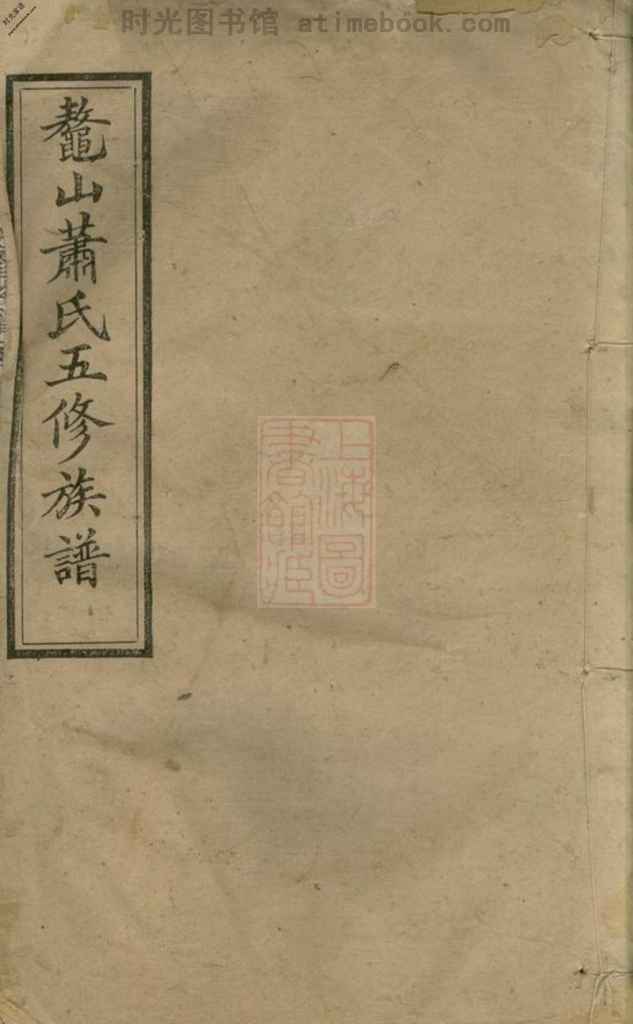 时光图书馆 atimebook.com
鼇山蕭氏五修族譜
上海圖
書館藏